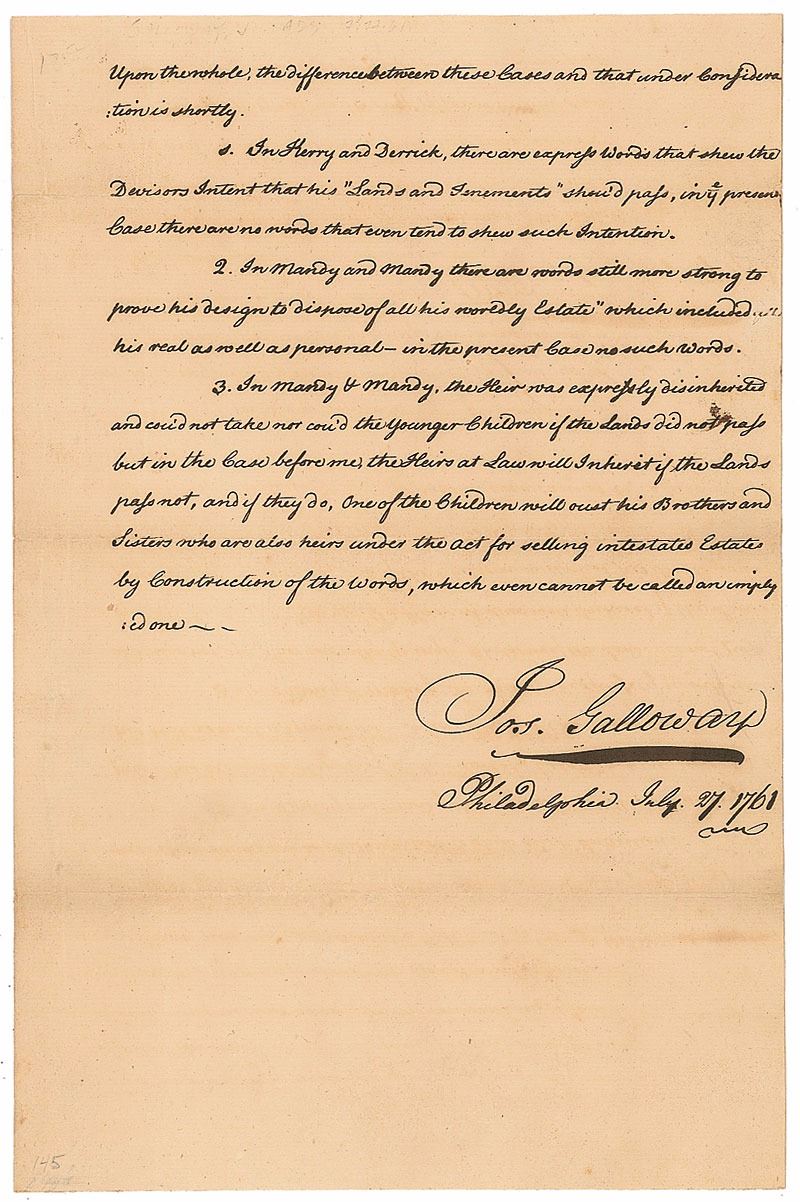 Upon the whole, the difference between these Cases and that under Considera
:tion is shortly.
1. In Kerry and Derrick, there are express Words that shew the
Devisors Intent that his "Lands and Tenements" shou'd pass, in yᵉ presen
Case there are no words that even tend to shew such Intention.
2. In Mandy and Mandy there are words still more strong to
prove his design to dispose of all his worldly Estate" which included
his real as well as personal – in the present Case no such Words.
3. In Mandy & Mandy, the Heir was expressly disinherited
and cou'd not take nor cou'd the younger Children if the Lands did not pass
but in the Case before me, the Heirs at Law will Inherit if the Lands
pass not, and if they do, One of the Children will oust his Brothers and
Sisters who are also heirs under the Act for selling intestates Estates
by Construction of the Words, which even cannot be called an imply
:ed one ~ –
Jos. Galloway
Philadelphia July. 27. 1761
145